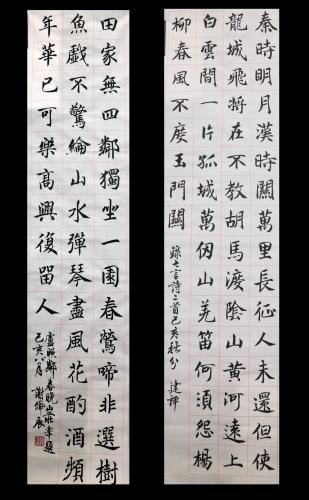 秦時明月漢時關萬里長征人未還但使
龍城飛將在不教胡馬渡陰山黃河遠上
白雲間一片孤城萬仞山羌笛何須怨楊
柳春風不度玉門關
錄七言詩二首己亥秋分
田家無四鄰獨坐一園春鶯啼非選樹
魚戲不驚綸山水彈琴盡風花酌酒頻
年華已可樂高興復留人
盧照鄰春晚山莊率題
己亥八月